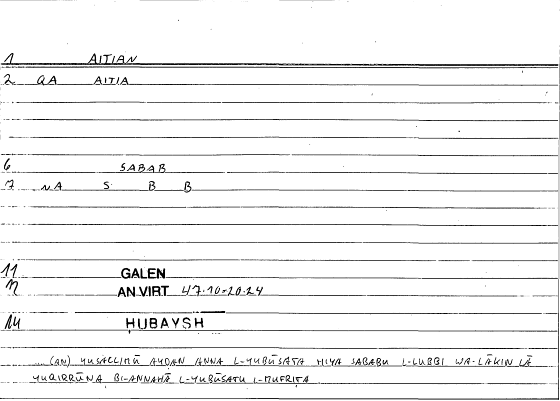 1 AITIAN
2 QA AITIA
6 SABAB
7 NA S B B
11 GALEN
12 AN VIRT 47.10-20.24
14 ḤUBAYSH
(AN) YUSALLIMŪ AYḌAN ANNA L-YUBŪSATA HIYA SABABU L-LUBBI WA-LĀKIN LĀ
YUQIRRŪNA BI-ANNAHĀ L-YUBŪSATU L-MUFRIṬA